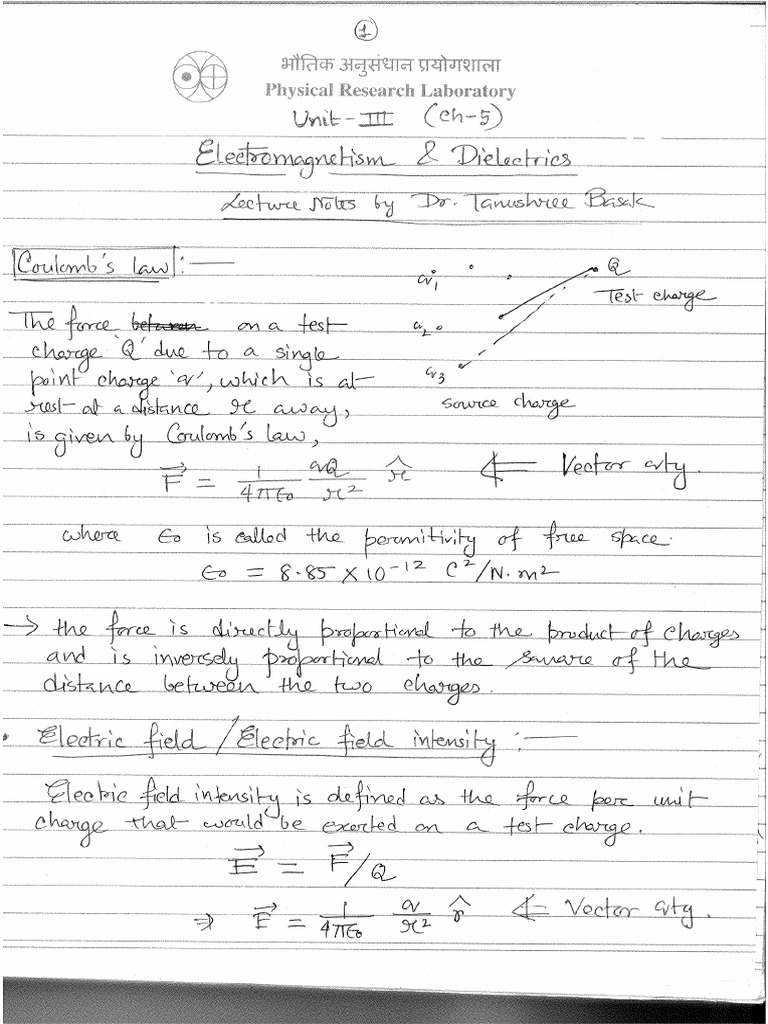 1
भौतिक अनुसंधान प्रयोगशाला
Physical Research Laboratory
Unit-III (Ch-5)
Electromagnetism & Dielectrics
Lecture Notes by Dr. Tanushree Basak
Coulomb's law :—
q1
Q
Test charge
q2
q3
source charge
The force between on a test
charge 'Q' due to a single
point charge 'q', which is at
rest at a distance r away,
is given by Coulomb's law,
F⃗ = 1/4πε0 qQ/r² r̂ ⇐ Vector qty.
where ε0 is called the permitivity of free space.
ε0 = 8.85 × 10⁻¹² C²/N.m²
→ the force is directly proportional to the product of charges
and is inversely proportional to the square of the
distance between the two charges.
• Electric field / Electric field intensity :—
Electric field intensity is defined as the force per unit
charge that would be exerted on a test charge.
E⃗ = F⃗/Q
⇒ E⃗ = 1/4πε0 q/r² r̂ ⇐ Vector qty.